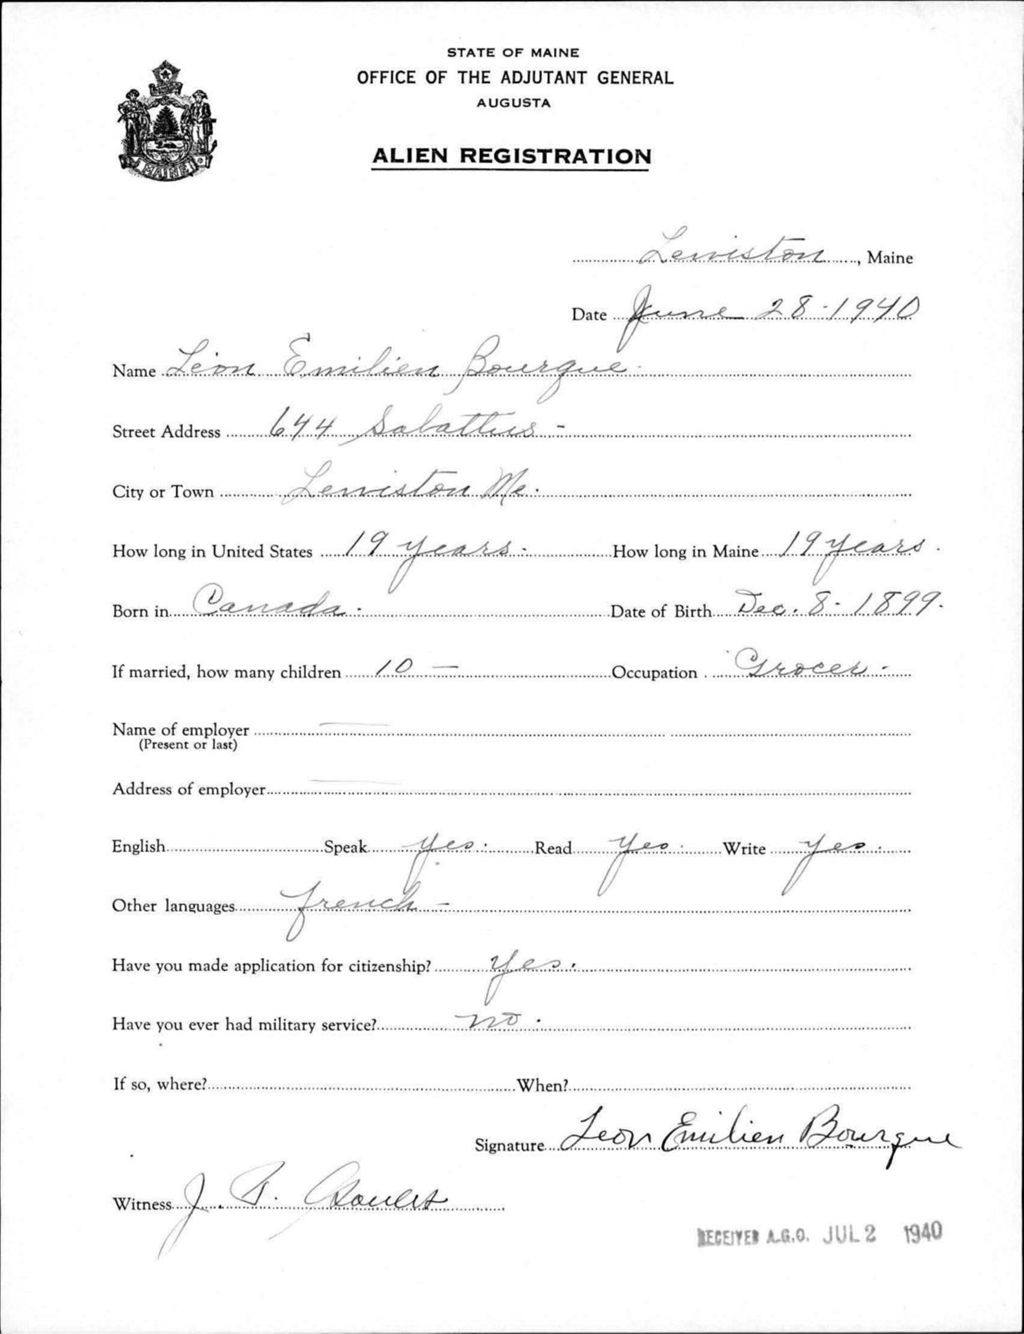 STATE OF MAINE
OFFICE OF THE ADJUTANT GENERAL
AUGUSTA
ALIEN REGISTRATION
MAINE
Lewiston, Maine
Date June 28-1940
Name Léon Emilien Bourque.
Street Address 644 Sabattus -
City or Town Lewiston Me.
How long in United States 19 years. How long in Maine 19 years.
Born in Canada. Date of Birth Dec. 8-1899.
If married, how many children 10 - Occupation Grocer.
Name of employer
(Present or last)
Address of employer
English Speak yes. Read yes. Write yes.
Other languages french -
Have you made application for citizenship? yes.
Have you ever had military service? no.
If so, where? When?
Signature Leon Emilien Bourque
Witness J.
RECEIVED A.G.O. JUL 2 1940